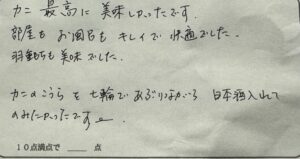 カニ 最高に 美味しかったです.
部屋も お風呂も キレイで 快適でした.
羽釜も美味でした.
カニのこうらを七輪であぶりながら 日本酒入れて
のみたかったですー
10点満点で ＿＿＿ 点